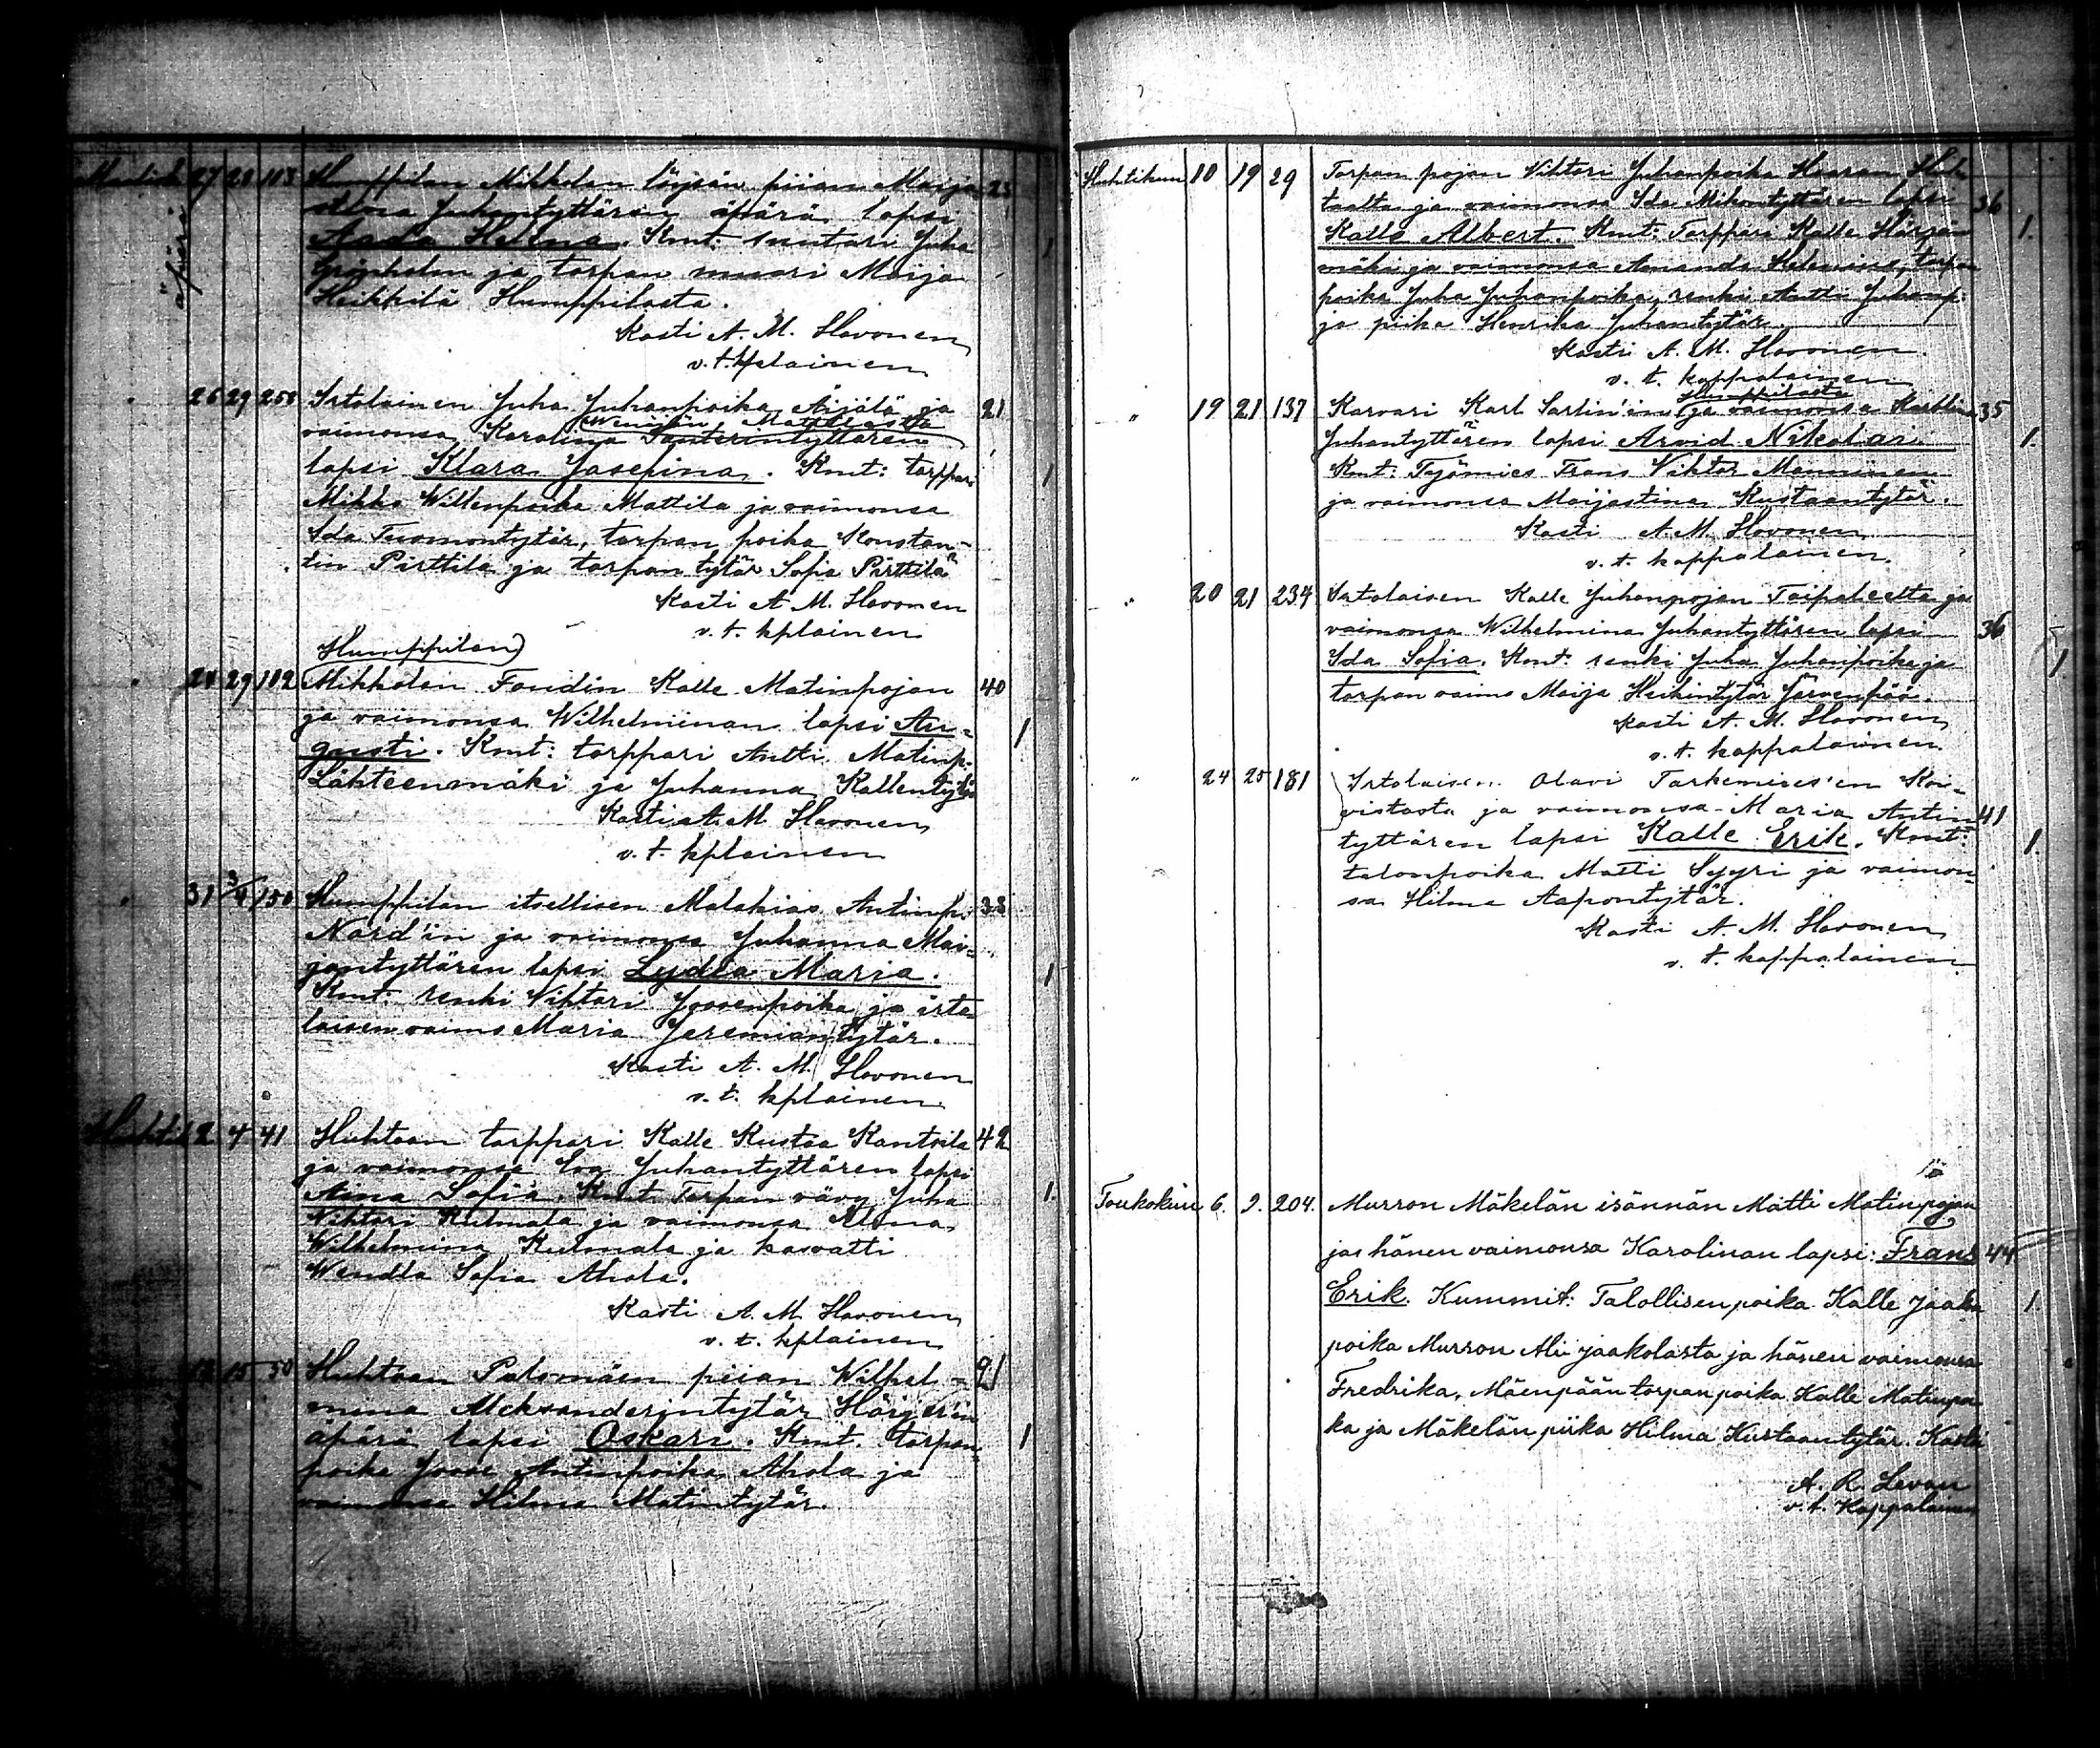 27 28 113 Humppilan Mikkolan löysän piian Maija 23
stiina Juhantyttären äpärä lapsi
äpärä
Aada Helena. Kmt: suutari Juha 1
Grönholm ja torpan muori Maija
Heikkilä Humppilasta.
Kasti A. M. Hovonen
v. t. kplainen
26 29 258 Irtolainen Juha Juhanpoika Äijälä ja 21
vaimonsa Karolina
lapsi Klara Josefina. Kmt: torppari 1
Mikko Willenpoika Mattila ja vaimonsa
Ida Tuomontytär, torpan poika Konstan-
tin Pirttilä ja torpan tytär Sofia Pirttilä
Kasti A M. Hovonen
v. t. kplainen
Humppilan
28 29 112 Mikkolan Fondin Kalle Matinpojan 40
ja vaimonsa Wilhelmiinan lapsi Au- 1
gusti. Kmt: torppari Antti Matinp.
Lähteenmäki ja Juhanna Kallentytär
Kasti A. M. Hovonen
v. t. kplainen
31 3/4 150 Humppilan itsellisen Malakias Antinp. 33
Nord'in ja vaimonsa Juhanna Mai-
jantyttären lapsi Lydia Maria. 1
Kmt. renki Vihtori Joosenpoika ja irto
laisen vaimo Maria Jeremiantytär.
Kasti A. M. Hovonen
v. t. kplainen.
Huhtik 2 4 41 Huhtaan torppari Kalle Kustaa Kantoila 42
ja vaimonsa Eva Juhantyttären lapsi
Aina Sofia. Kmt Torpan vävy Juha 1.
Vihtori Kulmala ja vaimonsa Alma
Wilhelmina Kulmala ja kasvatti
Wendla Sofia Ahola.
Kasti A. M. Hovonen
v. t. kplainen
13 15 50 Huhtaan Palomäen piian Wilhel- 21
mina Aleksanderintytär
äpärä lapsi Oskari. Kmt. torpan 1
poika Joose Antinpoika Ahola ja
vaimonsa Hilma Matintytär.
Huhtikuu 10 19 29 Torpan pojan Vihtori Juhanpoika Haaran Huh-
taalta ja vaimonsa Ida Mikontyttären lapsi 36
Kalle Albert. Kmt: Torppari Kalle Härjän 1.
mäki ja vaimonsa Amanda Helena, torpan
poika Juha Juhanpoika, renki Antti Juhanp.
ja piika Henrika Juhantytär.
Kasti A. M. Hovonen.
v. t. kappalainen
Humppilasta
" 19 21 137 Karvari Karl Sarlin'in ja vaimonsa 35
Juhantyttären lapsi Arvid Nikolai. 1.
Kmt: Työmies Frans Viktor Manninen
ja vaimonsa Maijastina Kustaantytär.
Kasti A. M. Hovonen
v. t. kappalainen.
" 20 21 234 Irtolaisen Kalle Juhanpojan Taipaleelta ja
vaimonsa Wilhelmina Juhantyttären lapsi 36
Ida Sofia. Kmt: renki Juha Juhanpoika ja 1
torpan vaimo Maija Heikintytär Järvenpää.
Kasti A. M. Hovonen
v. t. kappalainen.
" 24 25 181 Irtolaisen Olavi Tarkemies'en Koi-
vistosta ja vaimonsa Maria Antin 41
tyttären lapsi Kalle Erik. Kmt: 1.
talonpoika Matti Syyri ja vaimon-
sa Hilma Aapontytär.
Kasti A. M. Hovonen
v. t. kappalainen.
Toukokuu 6. 9. 204. Murron Mäkelän isännän Matti Matinpojan
ja hänen vaimonsa Karolinan lapsi: Frans 44
Erik. Kummit: Talollisen poika Kalle Jaako 1
poika Murron Ali Jaakolasta ja hänen vaimonsa
Fredrika, Mäenpään torpan poika Kalle Matinpoi
ka ja Mäkelän piika Hilma Kustaantytär. Kasti
A. R. Levon
v. t. Kappalainen